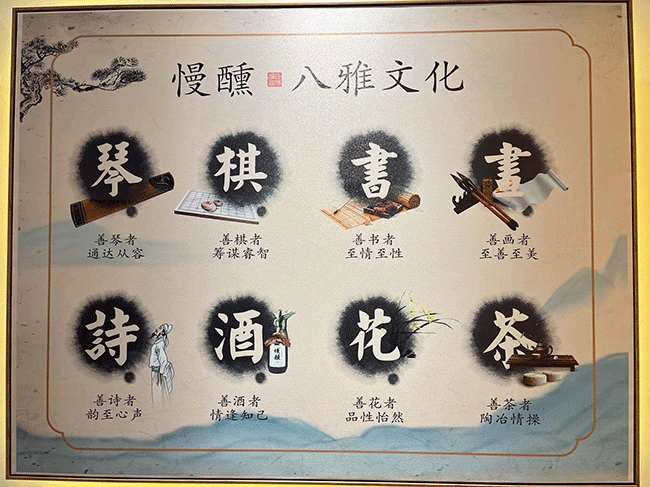 慢醺 八雅文化
琴
善琴者
通达从容
棋
善棋者
筹谋睿智
書
善书者
至情至性
畫
善画者
至善至美
詩
善诗者
韵至心声
酒
慢醺
善酒者
情逢知己
花
善花者
品性怡然
茶
善茶者
陶冶情操